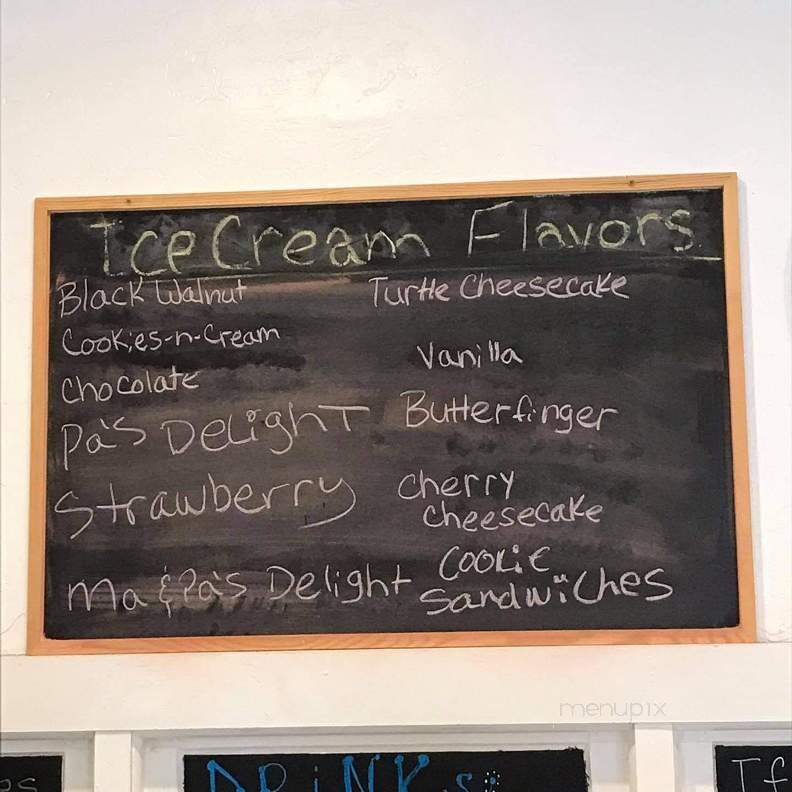 Ice Cream Flavors
Black Walnut
Cookies-n-Cream
Chocolate
Pa's DeLighT
Strawberry
Ma & Pa's Delight
Turtle Cheesecake
Vanilla
Butterfinger
Cherry
Cheesecake
Cookie
Sandwiches
menupix
es
DRiNKs:
If